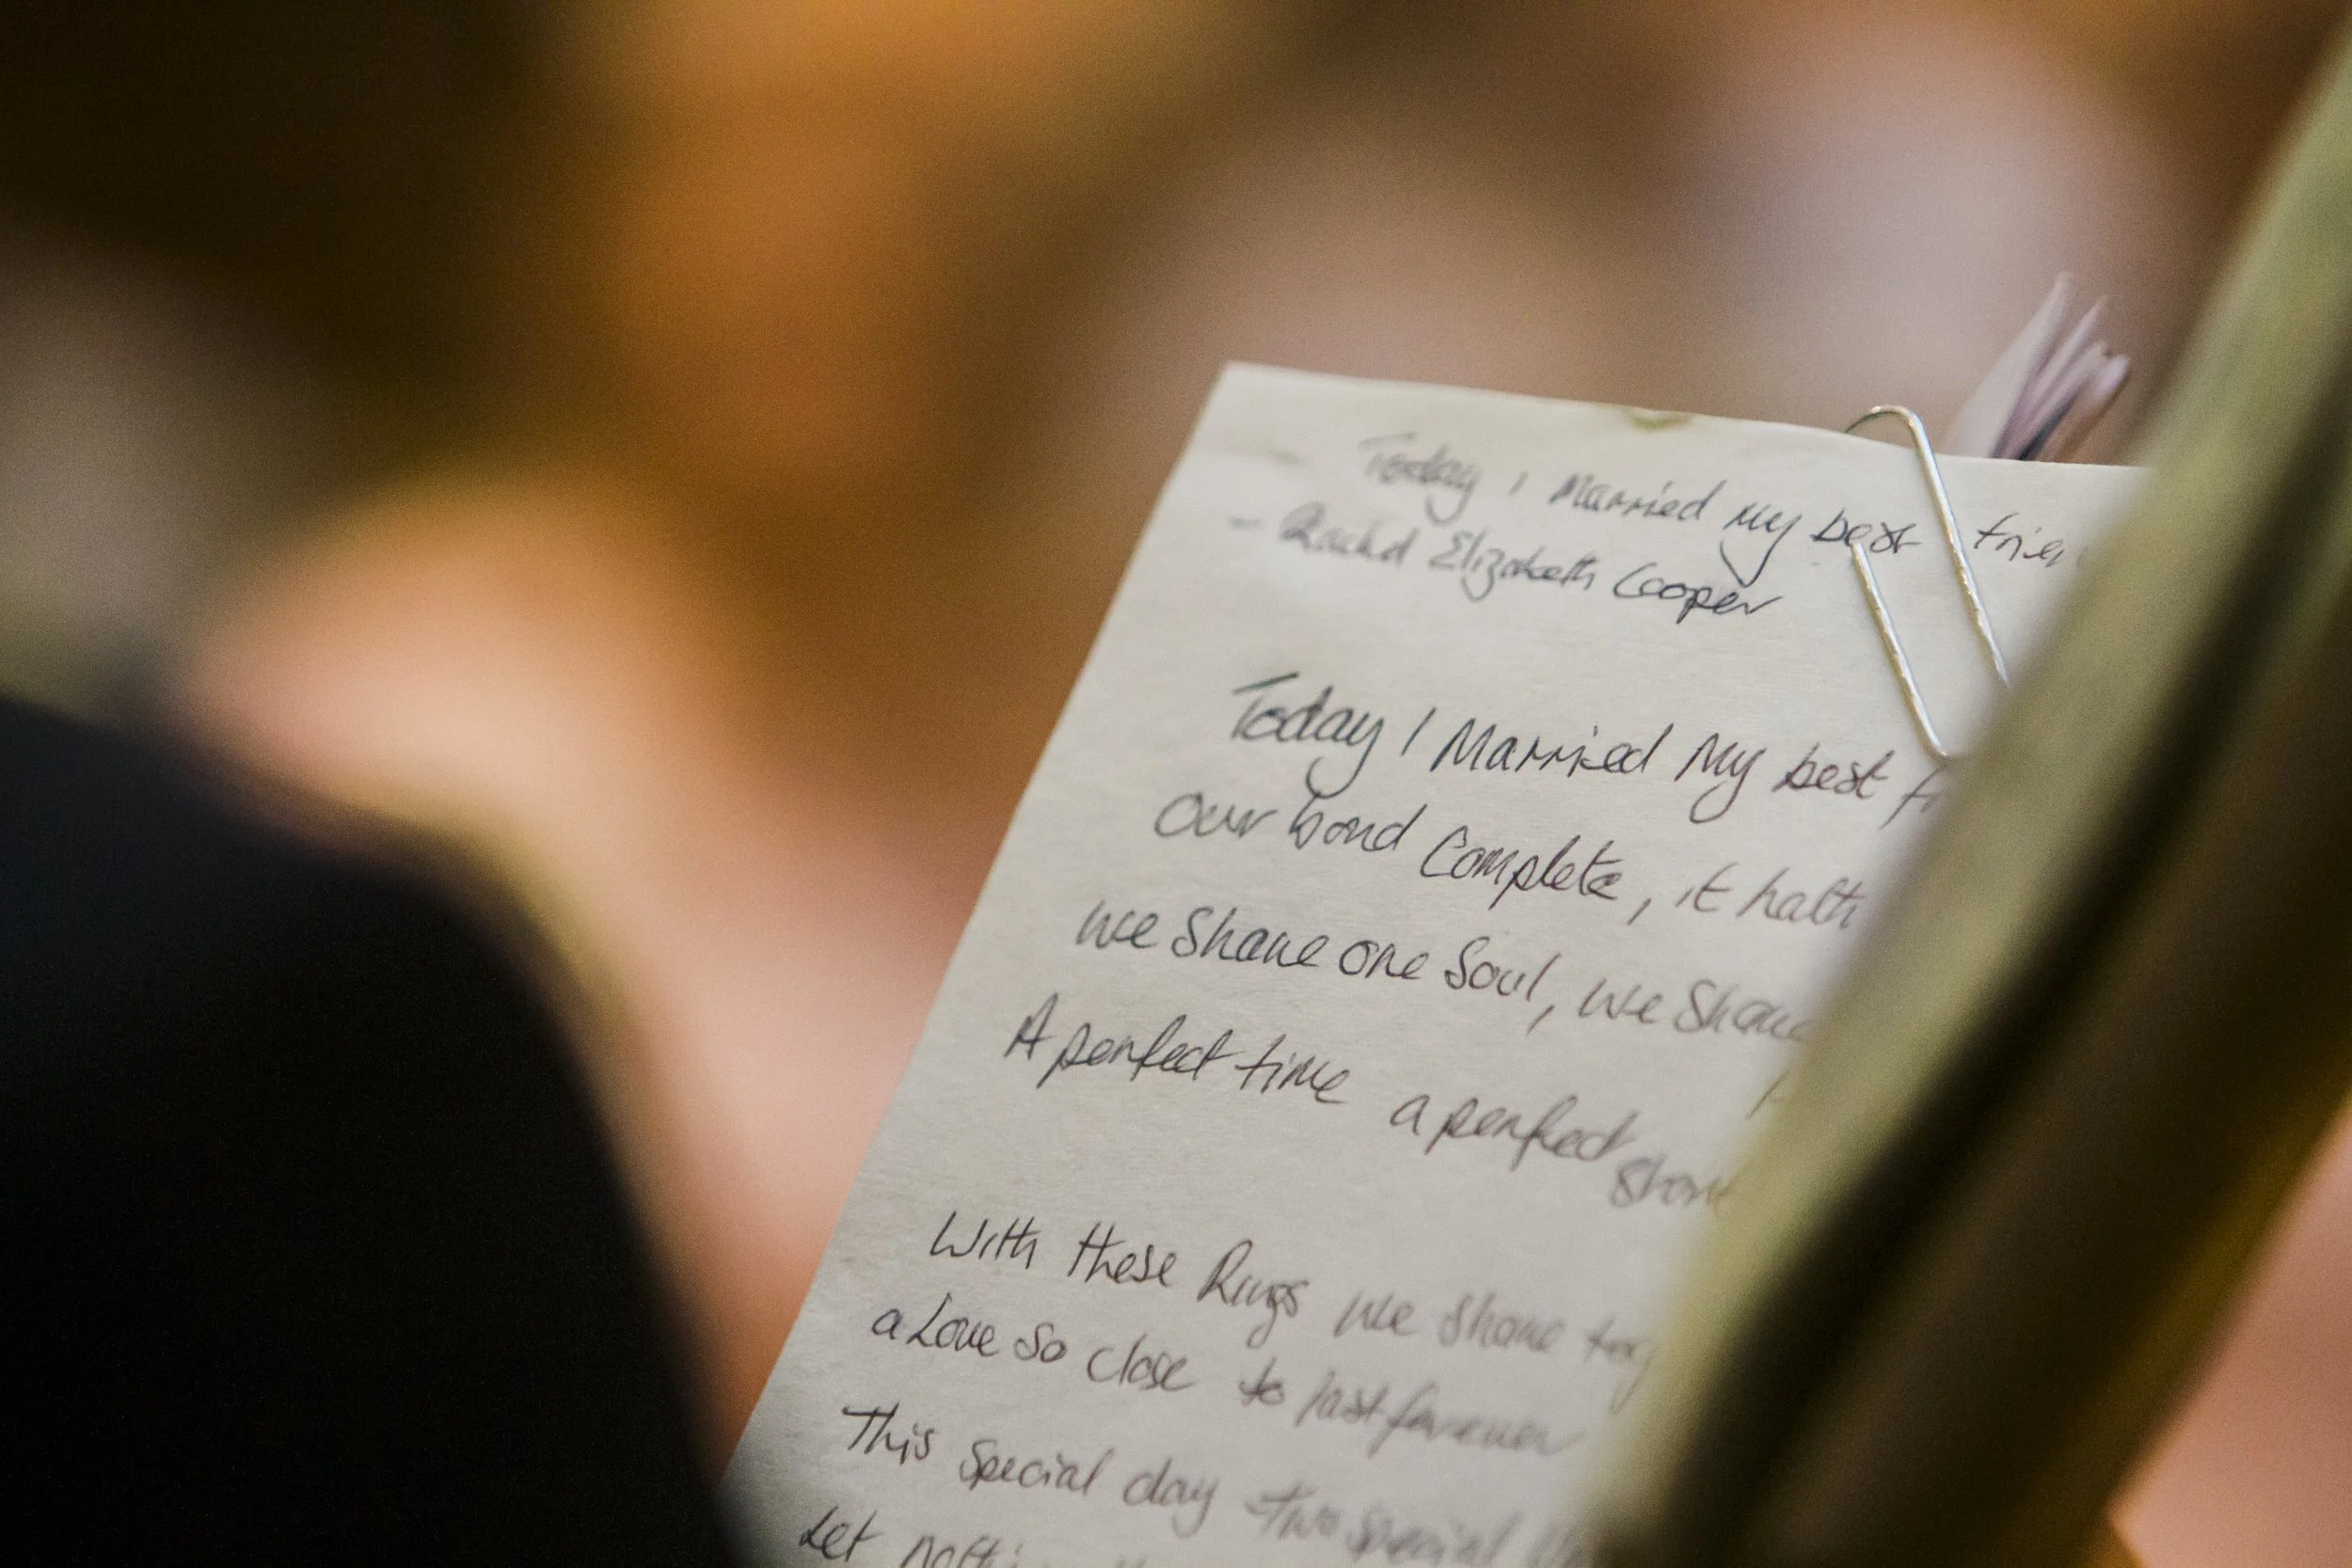 Today I Married My best frien
- Rachel Elizabeth Cooper
Today I Married My best
Our bond Complete, it hath
We Share one Soul, We Share
A perfect time a perfect
With these Rings we Share
a Love So close to last forever
This Special day two Special
Let